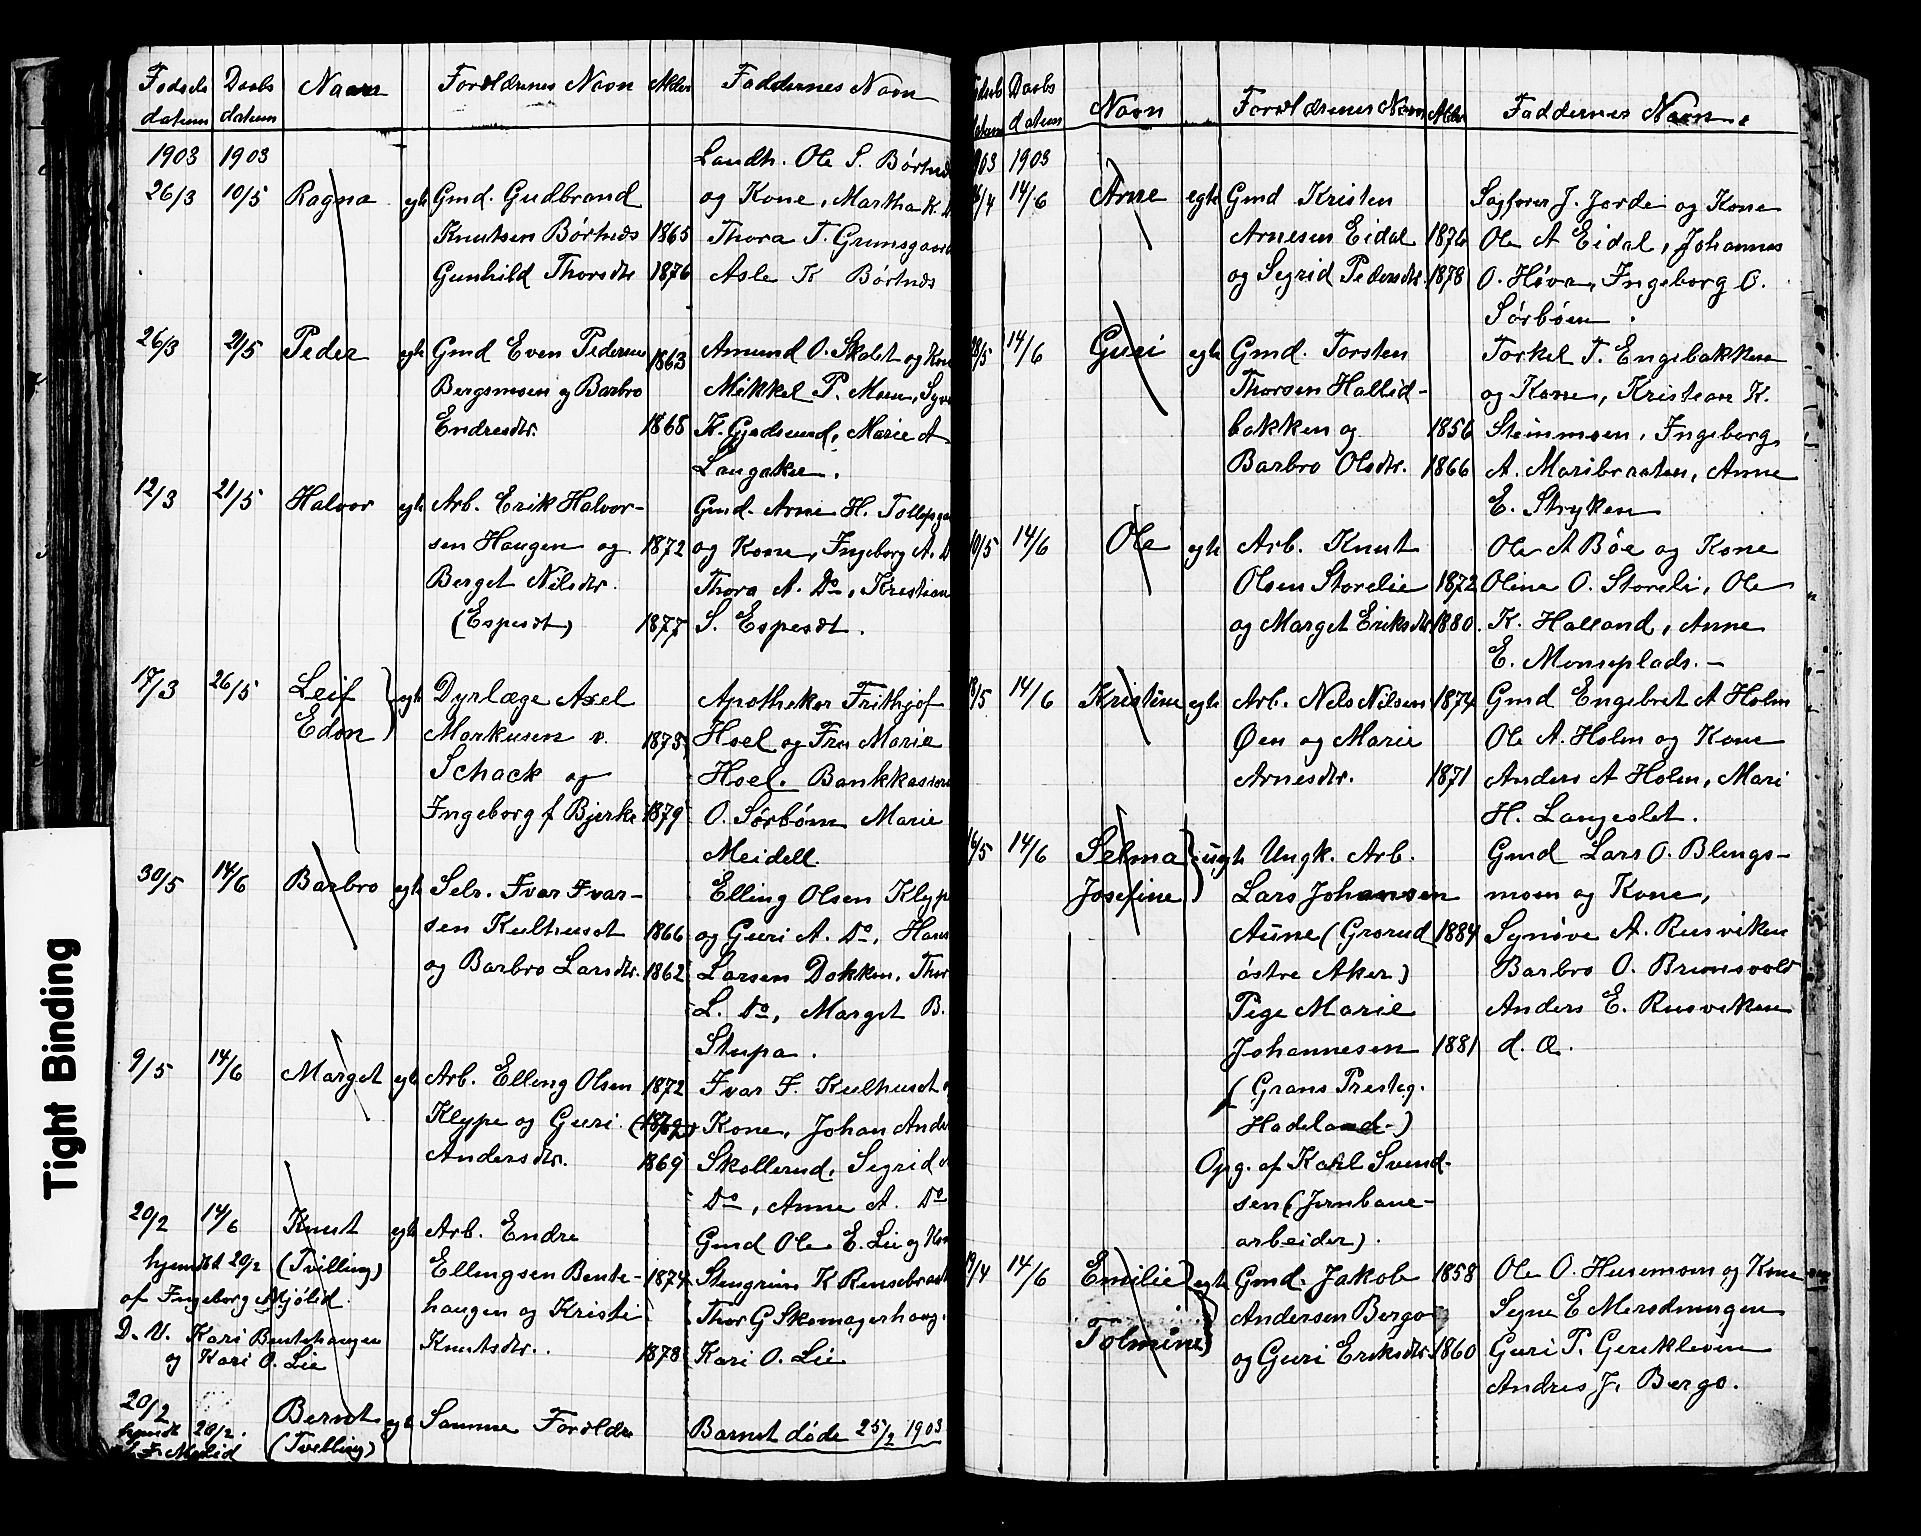 Fødsels Daabs Navn Forældrenes Navn Alder Faddernes Navn
datum datum
1903 1903 Landh. Ole S. Børtnæs
26/3 10/5 Ragna egte Gmd. Gudbrand og Kone, Martha K. Do
Knutsen Børtnes 1865 Thora T. Grimsgaard
Gunhild Thorsdtr 1876 Asle K Børtnæs
26/3 21/5 Peder egte Gmd Even Pedersen 1863 Amund O. Skolet og Kone
Bergsmoen og Barbro Mikkel P. Moen,
Endresdtr. 1868 K. Gjødsund, Marie A
Langaker.
12/3 21/5 Halvor egte Arb. Erik Halvor- Gmd. Arne H.
sen Haugen og 1872 og Kone, Ingeborg A. Do
Berget Nilsdtr. Thora A. Do, Kristian
(Espesdt) 1877 S. Espesdt.
17/3 26/5 Leif egte Dyrlæge Axel Apotheker Frithjof
Edon Markusen v. 1875 Hoel og Fru Marie
Schack og Hoel. Bankkasserer
Ingeborg f Bjerke 1879 O. Sørbøen Marie
Meidell.
30/5 14/6 Barbro egte Selv. Ivar Ivar- Elling Olsen Klype
sen Kulhuset 1866 og Guri A. Do, Hans
og Barbro Larsdtr. 1862 Larsen Dokken, Thor
L. Do, Marget B.
Stupa.
9/5 14/6 Marget egte Arb. Elling Olsen 1872 Ivar I. Kulhuset
Klype og Guri Kone, Johan Anders
Andersdtr. 1869 Skollerud, Sigrid A
Do, Anne A. Do
20/2 14/6 Knut egte Arb. Endre Gmd Ole E. Lie og Kone
hjemdt 20/2 (Tvilling) Ellingsen Bente- 1874 Stengrim K Rensebraaten
af Ingeborg Mjølid haugen og Kristi Thor G Skomagerhaug.
D. V. Kari Bentehaugen Knutsdtr. 1878 Kari O. Lie
og Kari O. Lie
20/2 Bernt egte Samme Forældre Barnet døde 25/2 1903
hjemdt 20/2. (Tvilling)
af I. Mjølid
Fødsels Daabs Navn Forældrenes Navn Alder Faddernes Navn.
datum datum
1903 1903
14/6 Arne egte Gmd Kristen Sagfører J. Jorde og Kone
Arnesen Eidal 1876 Ole A Eidal, Johannes
og Sigrid Pedersdtr. 1878 O. Høva, Ingeborg O.
Sørbøen.
14/6 Guri egte Gmd. Torsten Torkel T. Engebakken
Thorsen Hallid- og Kone, Kristian K.
bakken og 1856 Steinmoen, Ingeborg
Barbro Olsdtr. 1866 A. Maribraaten, Anne
E. Stryken
14/6 Ole egte Arb. Knut Ole A Bøe og Kone
Olsen Storelie 1872 Oline O. Storeli, Ole
og Marget Eriksdtr. 1880. K. Halland, Anne
E. Monseplads. —
14/6 Kristine egte Arb. Nels Nilsen 1874 Gmd Engebret A Holm
Øen og Marie Ole A. Holm og Kone
Arnesdtr. 1871 Anders A Holm, Mari
H. Langeslet.
16/5 14/6 Selma uegte Ungk. Arb. Gmd Lars O. Blengs-
Josefine Lars Johansen moen og Kone,
Aune (Grorud 1884 Synøve A. Rusviken
østre Aker) Barbro O. Brunsvold
Pige Marie Anders E. Rusviken
Johannesen 1881 d. æ.
(Grans Presteg.
Hadeland-)
Opg. af Karl Svend-
sen (Jernbane-
arbeider).
19/4 14/6 Emilie egte Gmd. Jakob 1858 Ole O. Husemoen og Kone
Andersen Bergo Signe E
Tolmine og Guri Eriksdtr. 1860 Guri T. Gerikleven
Andres J. Bergo.
Tight Binding